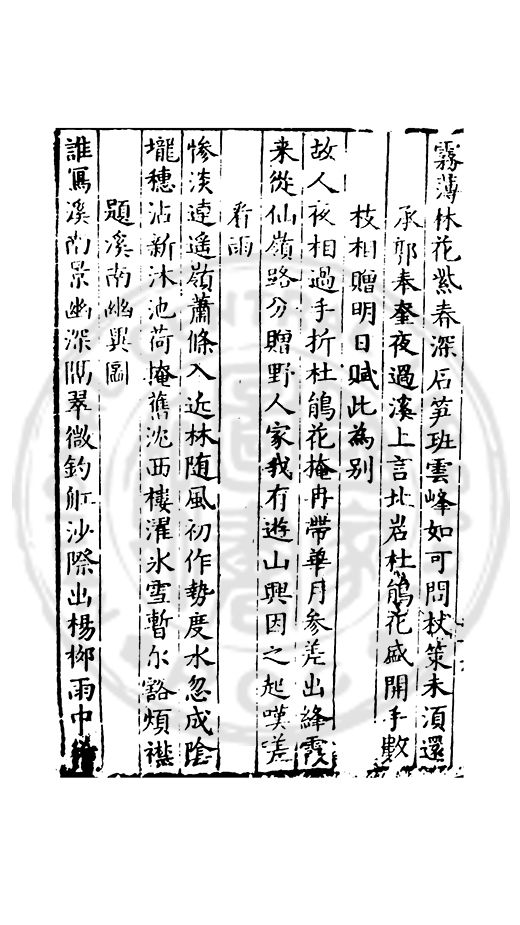 霧薄林花紫春深石笋班雲峰如可問杖策未須還
承郭奉奎夜過溪上言北岩杜鵑花盛開手數
枝相贈明日賦此為别
故人夜相過手折杜鵑花掩冉帶華月參差出絳霞
来從仙嶺路分贈野人家我有遊山興因之起嘆嗟
看雨
惨淡連遥嶺蕭條入近林随風初作勢度水忽成陰
壠穗沾新沐池荷掩舊沈西樓濯氷雪暫尔豁煩襟
題溪南幽興圖
誰寫溪南景幽深隔翠微釣舡沙際出楊柳雨中